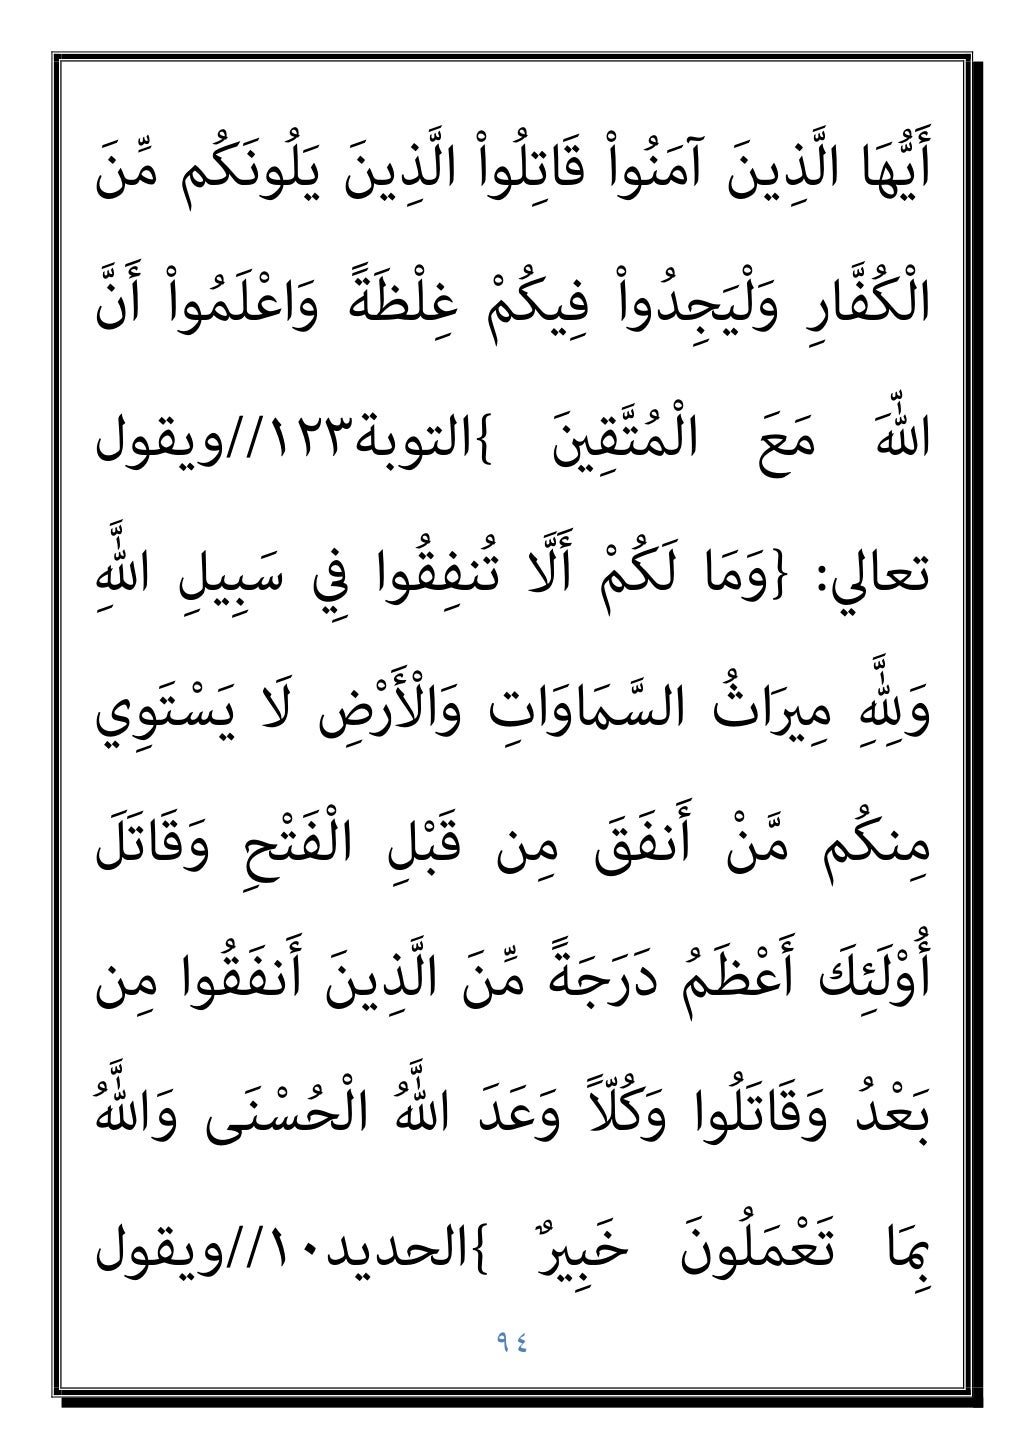 أَيُّهَا الَّذِينَ آمَنُواْ قَاتِلُواْ الَّذِينَ يَلُونَكُم مِّنَ
الْكُفَّارِ وَلْيَجِدُواْ فِيكُمْ غِلْظَةً وَاعْلَمُواْ أَنَّ
اللّهَ مَعَ الْمُتَّقِينَ }التوبة١٢٣//ويقول
تعالي: {وَمَا لَكُمْ أَلَّا تُنفِقُوا فِي سَبِيلِ اللَّهِ
وَلِلَّهِ مِيرَاثُ السَّمَاوَاتِ وَالْأَرْضِ لَا يَسْتَوِي
مِنكُم مَّنْ أَنفَقَ مِن قَبْلِ الْفَتْحِ وَقَاتَلَ
أُوْلَئِكَ أَعْظَمُ دَرَجَةً مِّنَ الَّذِينَ أَنفَقُوا مِن
بَعْدُ وَقَاتَلُوا وَكُلّاً وَعَدَ اللَّهُ الْحُسْنَى وَاللَّهُ
بِمَا تَعْمَلُونَ خَبِيرٌ }الحديد١٠//ويقول
٩٤